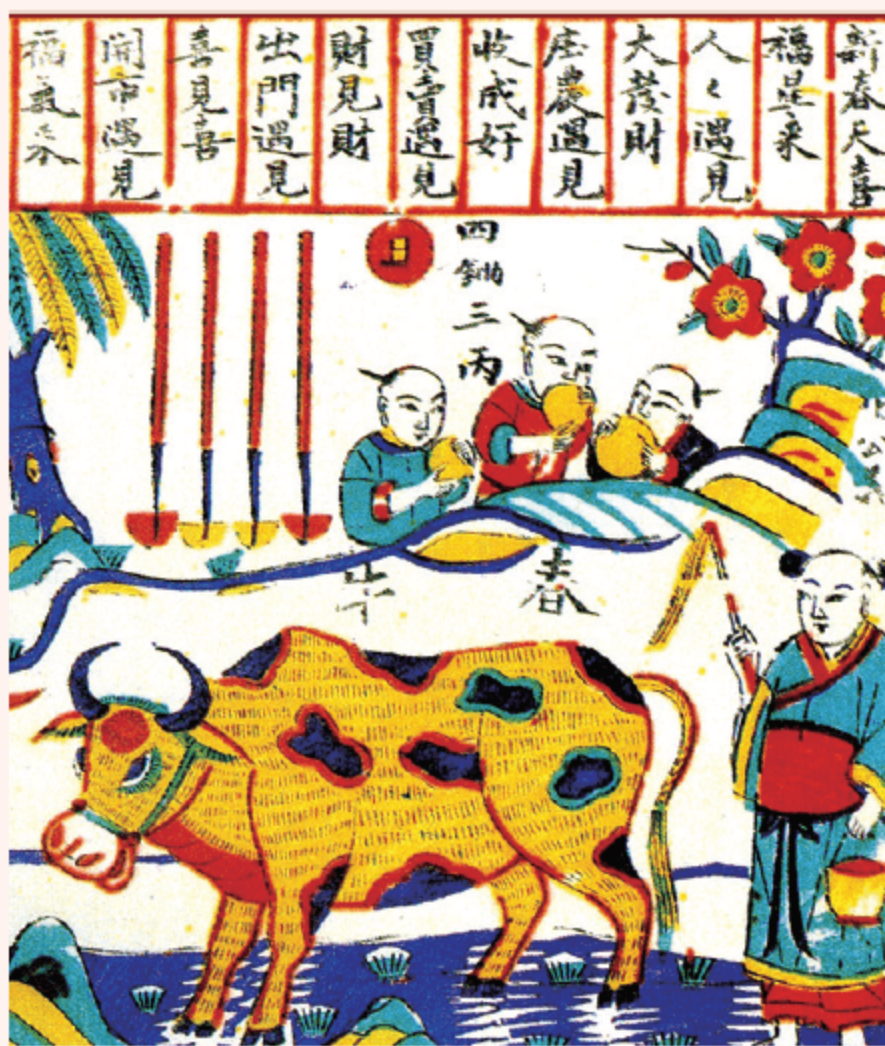 新春天喜
福星来
人々遇見
大發財
庄農遇見
收成好
買賣遇見
財見財
出門遇見
喜見喜
開市遇見
福氣
四鋤三丙
春牛